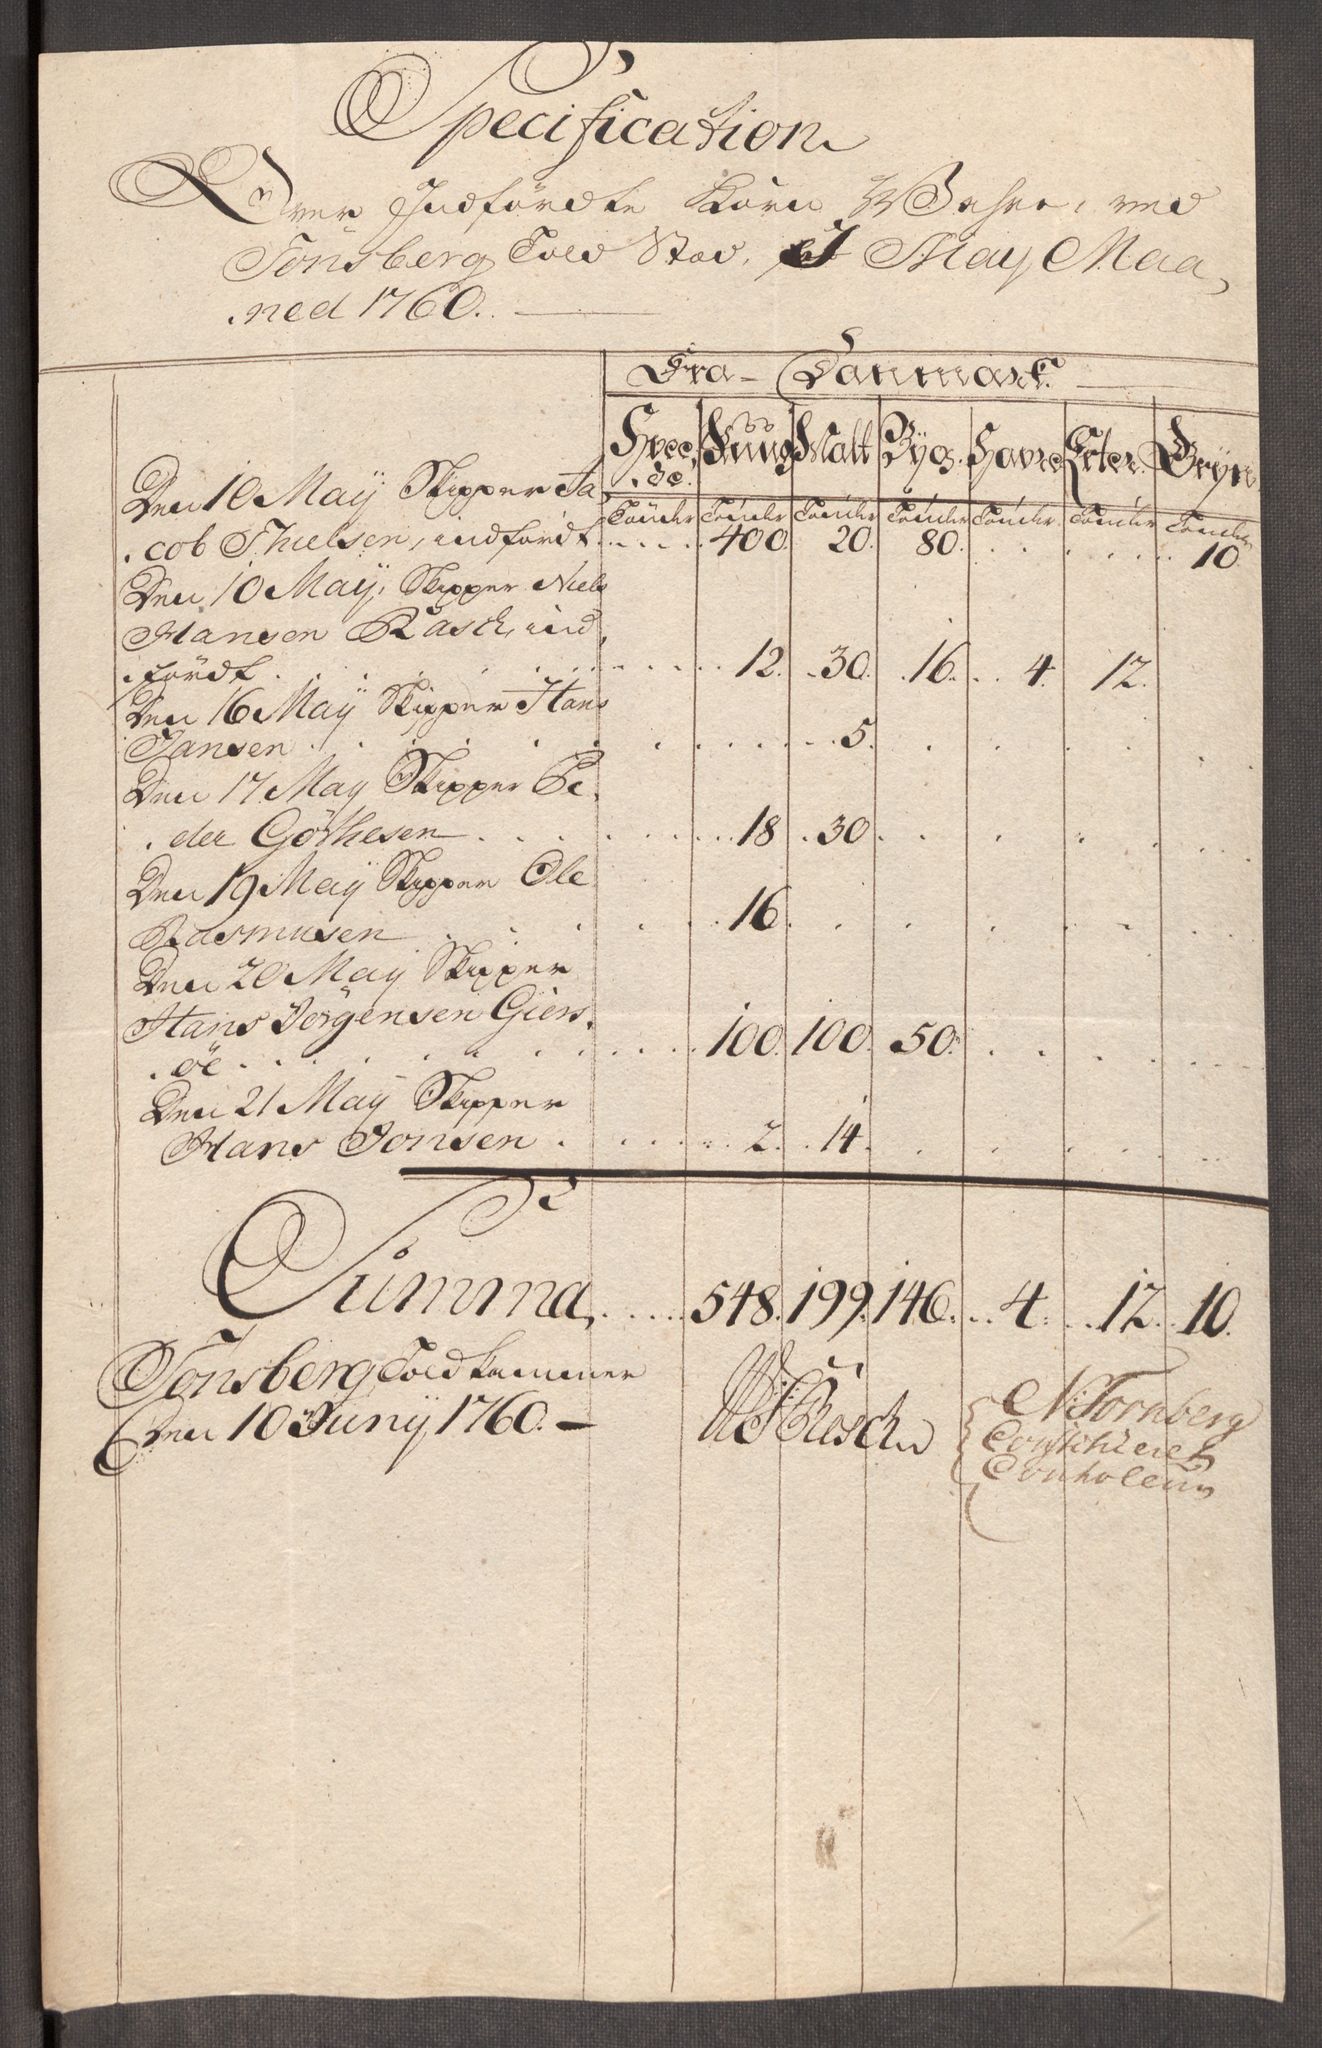 Specification
Over Indfördte Korn Wahre, ved
Tönsberg Told Stæd, I May Maa,
ned 1760.
Fra Danmark
Hvee,
de. Rüug Malt Byg. Havre Erter. Gryn
Tönder Tönder Tönder Tönder Tönder Tönder Tönder
Den 10 Maÿ Skipper Ja
cob Thielsen, indfördt 400. 20. 80. 10
Den 10 Maÿ, Skipper Niels
Hansen Rasch, ind,
fördt 12. 30. 16. 4. 12.
Den 16 Maÿ Skipper Hans
Jansen 5.
Den 17 May Skipper Pe,
der Göthesen 18 30
Den 19 Maÿ Skipper Ole
Rasmusen 16
Den 20 Maÿ Skipper
Hans Jörgensen Giers,
öe 100. 100. 50.
Den 21 Maÿ Skipper
Hans Jonsen 2. 14.
Summa 548. 199. 146. 4. 12. 10.
Tönsberg Told Kammer
Den 10 Junÿ 1760.
Rasch
N: Tornberg
Constitueret
Controleur